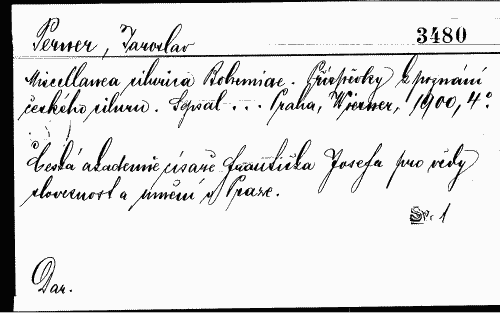 Perner, Jaroslav
3480
Miscellanea silurica Bohemiae. Příspěvky k poznání
českého siluru. Sepsal ... Praha, Wiesner, 1900, 4°.
Česká akademie císaře Františka Josefa pro vědy
slovesnost a umění v Praze.
Sp. 1
Dar.